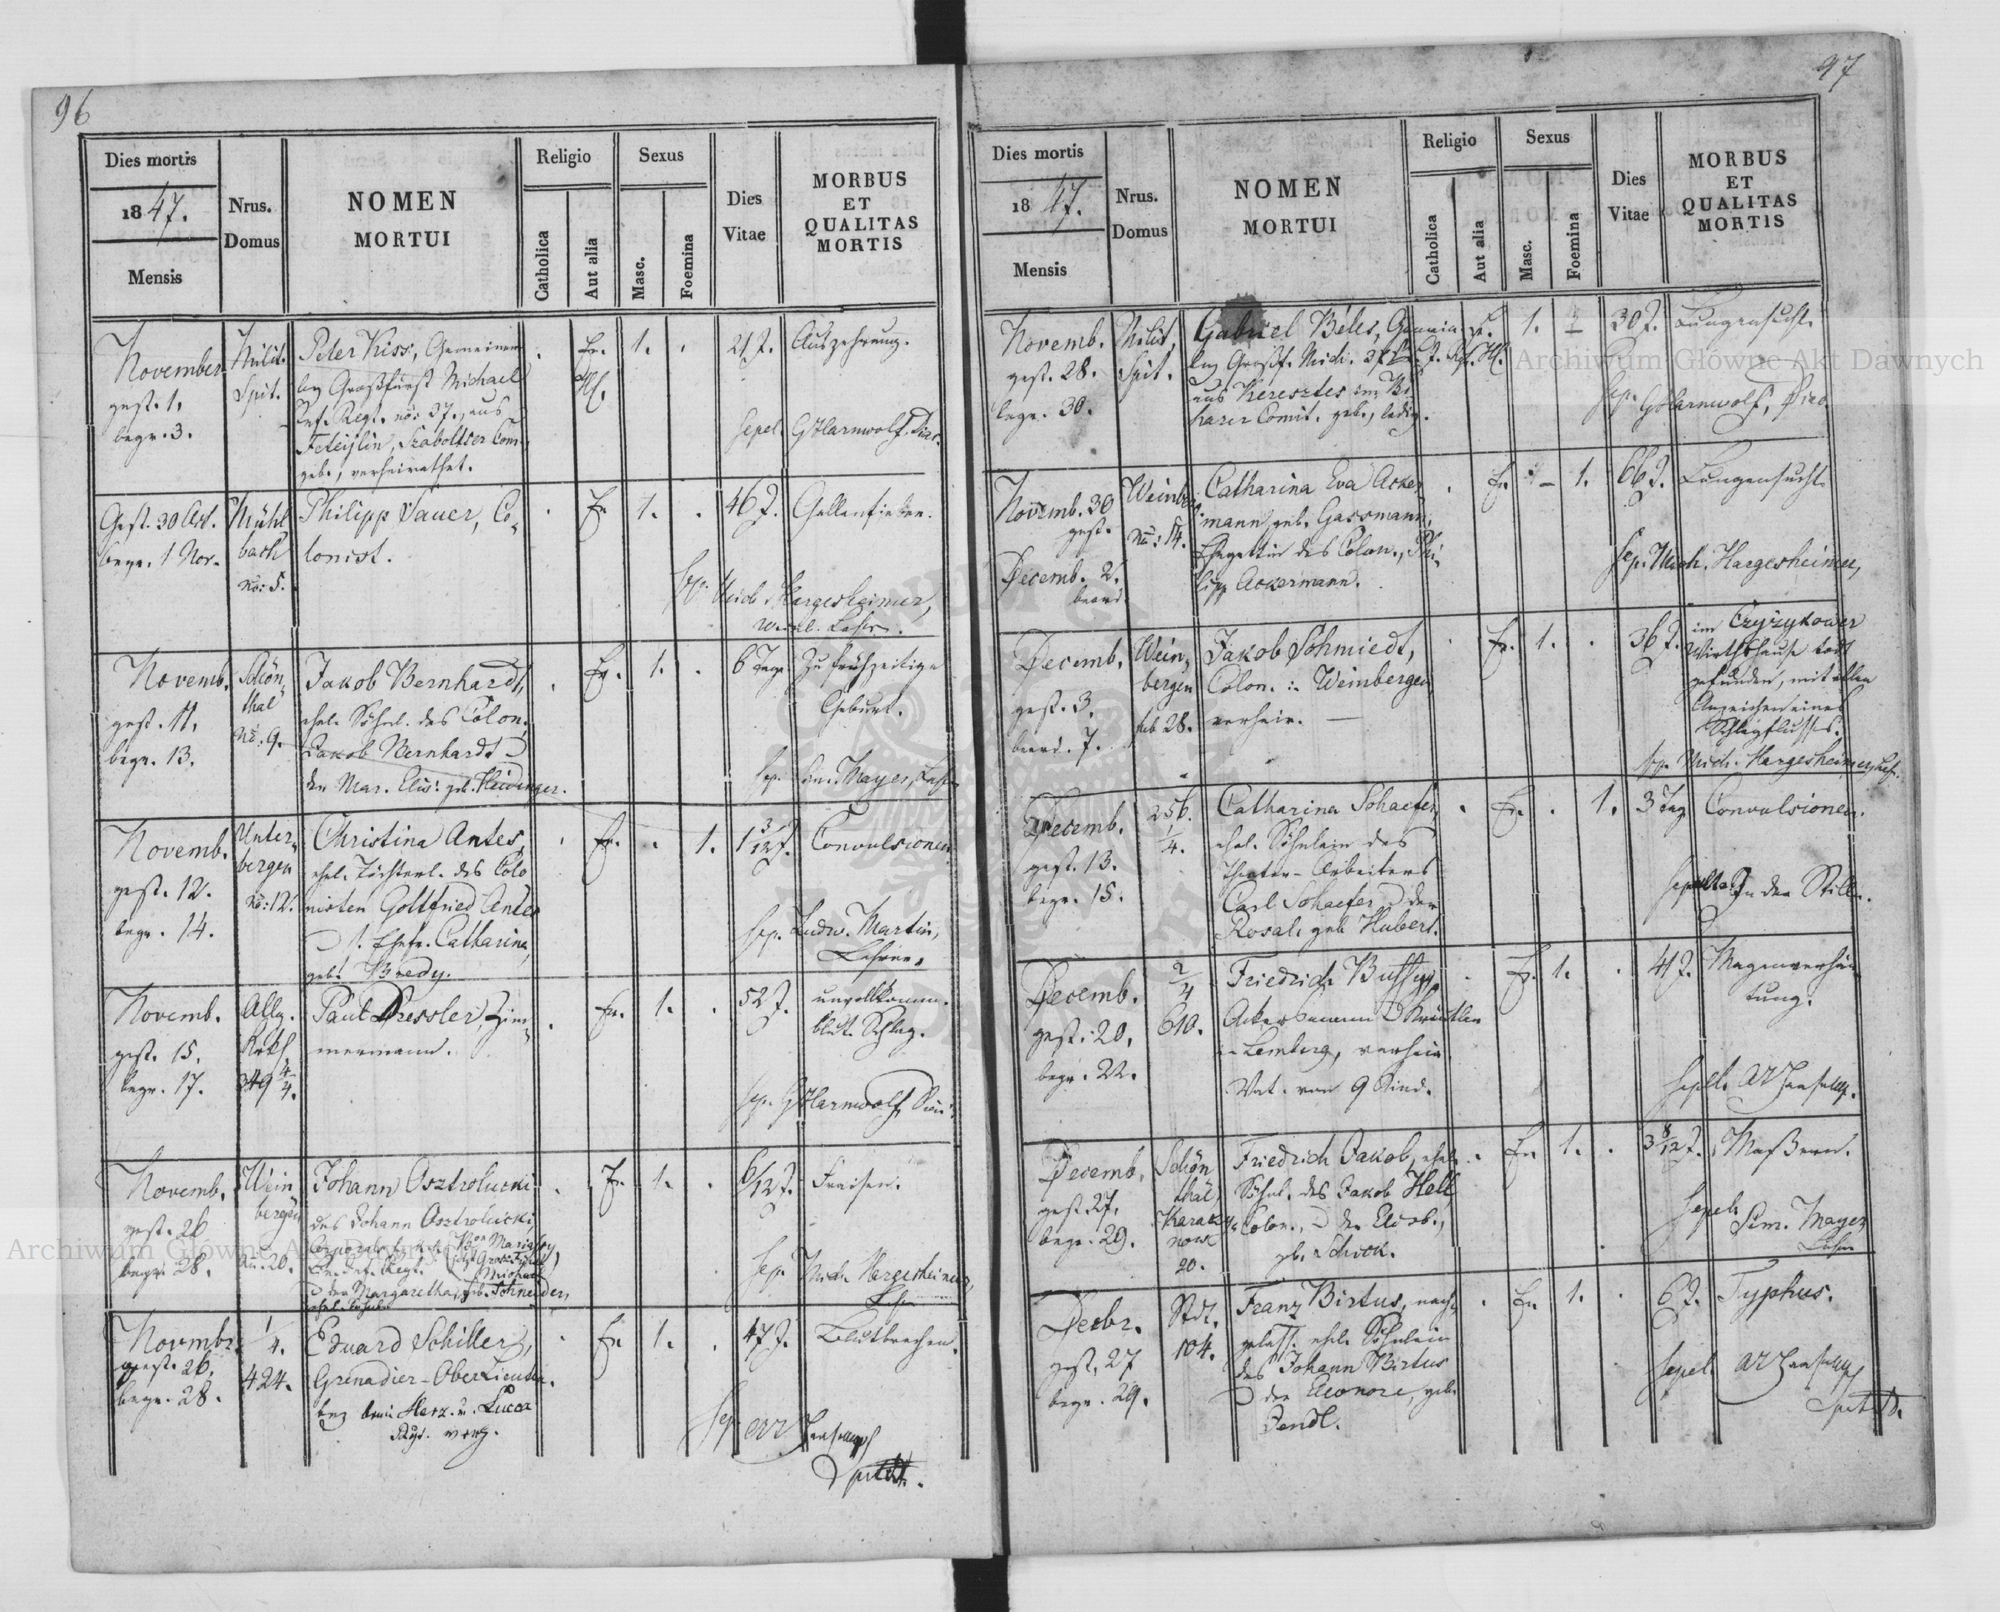 96
Dies mortis
1847.
Mensis
Nrus.
Domus
NOMEN
MORTUI
Religio
Catholica
Aut alia
Sexus
Masc.
Foemina
Dies
Vitae
MORBUS
ET
QUALITAS
MORTIS
November
gest. 1.
begr. 3.
Milit.
Spit.
Peter Kiss, Gemeiner
bey Großfürst Michael
Inf. Regt. nro: 37., aus
Szaboltser Com.
geb., verheirathet.
1.
21 J.
Auszehrung.
sepel. Diac.
Gest. 30 Oct.
begr. 1 Nov.
Mühl
bach
No: 5.
Philipp Sauer, Co-
lonist.
1.
46 J.
Gallenfieber.
sep. Mich. Hargesheimer,
Lehr.
Novemb.
gest. 11.
begr. 13.
Schön
thal
No: 9.
Jakob Bernhardt,
ehel. Söhnl. des Colon.
Jakob Bernhardt
der Mar. Elis: geb. Heidinger.
1.
6 Tage
Zu frühzeitige
Geburt.
sep. Sim. Mayer, Lehr
Novemb.
gest. 12.
begr. 14.
Unter
bergen
No: 12.
Christina Antes,
ehel. Töchterl. des Colo
nisten Gottfried Antes
Ehefr. Catharina,
geb. Bredy.
1.
1 3/12 J.
Convulsionen
sep. Ludw. Martin,
Lehrer.
Novemb.
gest. 15.
begr. 17.
Allg.
Krkh.
349 4/4.
Paul Dressler, Zim-
mermann.
1.
52 J.
unvollkomm.
blut. Schlag.
Novemb.
gest. 26
begr. 28.
Wein
bergen
No. 20.
Johann Osztrolucki
des Johann Osztrolucki,
Mariassy
Michael
der Margaretha, geb. Schneider,
ehel. Söhnl.
1.
6/12 J.
Fraisen.
sep. Mich. Hargesheimer,
Lehr
Novembr.
gest. 26.
begr. 28.
1/4.
424.
Eduard Schiller,
Grenadier-OberLieuten.
bey Herz. v. Lucca
1.
47 J.
Blutbrechen.
97
Dies mortis
1847.
Mensis
Nrus.
Domus
NOMEN
MORTUI
Religio
Catholica
Aut alia
Sexus
Masc.
Foemina
Dies
Vitae
MORBUS
ET
QUALITAS
MORTIS
Novemb.
gest. 28.
begr. 30.
Milit.
Spit.
Gabriel Béles, Gemein.
bey Großf. Mich.
aus Keresztes im Bi
harer Comit. geb., ledig.
1.
30 J.
Lungensucht.
Novemb. 30
gest.
Decemb. 2.
beerd.
Weinb.
No: 14.
Catharina Eva Acker
mann, geb. Gassmann,
Ehegattin des Colon., Phi-
lipp Ackermann.
1.
66 J.
Lungensucht.
sep. Mich. Hargesheimer,
Decemb.
gest. 3.
beerd. 7.
Wein
bergen
28.
Jakob Schmiedt,
Colon. Weinbergen
verheir.
1.
36 J.
im Czyzykower
Wirthshause todt
gefunden, mit allen
Anzeichen eines
Schlagflusses.
sep. Mich. Hargesheimer, Lehr.
Decemb.
gest. 13.
begr. 15.
256.
1/4.
Catharina Schaefer,
ehel. Söhnlein des
Theater-Arbeiters
Carl Schaefer der
Rosal. geb. Hubert.
1.
3 Tag
Convulsionen.
In der Stille.
Decemb.
gest. 20.
begr. 22.
2/4
610.
Friedrich
in Lemberg, verheir
Vat. von 9 Kind.
1.
41 J.
Magenverhär
tung.
Decemb.
gest. 27.
begr. 29.
Schön
thal
20.
Friedrich Jakob, ehel.
Söhnl. des Jakob Hell
Colon., der Elisb.,
geb. Schick.
1.
3 8/12 J.
Masern.
sepel. Sim. Mayer
Lehr
Decbr.
gest. 27
begr. 29.
Stdt.
104.
Franz Birtus, nach-
gelass. ehel. Söhnlein
des Johann Birtus
der Eleonore, geb.
Jendl.
1.
6 J.
Typhus.
Archiwum Główne Akt Dawnych
Archiwum Główne Akt Dawnych